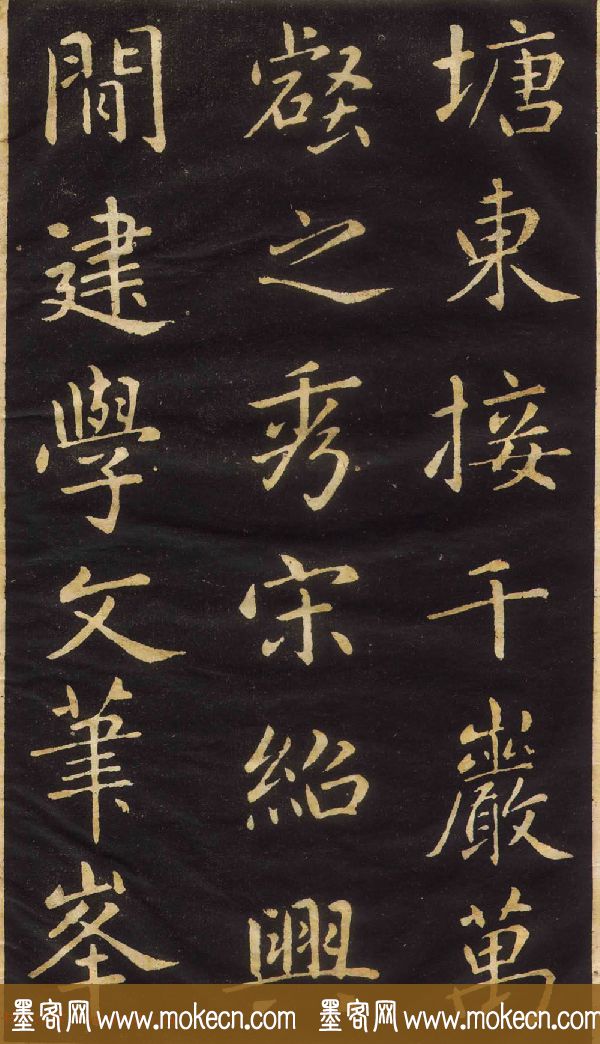 塘東接千巖萬
壑之秀宋紹興
間建學文筆峯
墨客网 www.mokecn.com 墨客网 www.mokecn.com